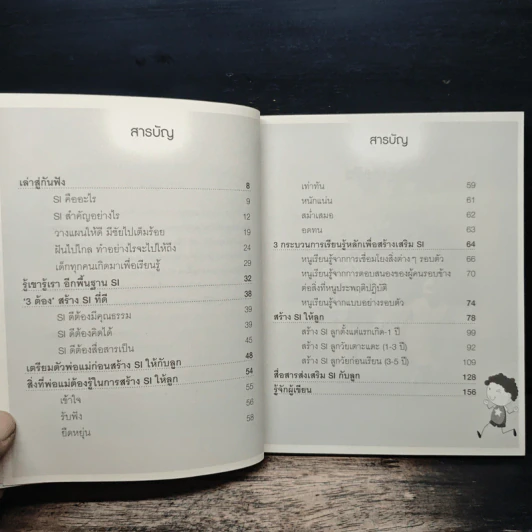 สารบัญ
เล่าสู่กันฟัง 8
SI คืออะไร 9
SI สำคัญอย่างไร 12
วางแผนให้ดี มีชัยไปเต็มร้อย 19
ฝันไปไกล ทำอย่างไรจะไปให้ถึง 24
เด็กทุกคนเกิดมาเพื่อเรียนรู้ 29
รู้เขารู้เรา อีกพื้นฐาน SI 32
'3 ต้อง' สร้าง SI ที่ดี 38
SI ดีต้องมีคุณธรรม 39
SI ดีต้องคิดได้ 39
SI ดีต้องสื่อสารเป็น 45
เตรียมตัวพ่อแม่ก่อนสร้าง SI ให้กับลูก 48
สิ่งที่พ่อแม่ต้องรู้ในการสร้าง SI ให้ลูก 54
เข้าใจ 55
รับฟัง 56
ยืดหยุ่น 58
สารบัญ
เท่าทัน 59
หนักแน่น 61
สม่ำเสมอ 62
อดทน 63
3 กระบวนการเรียนรู้หลักเพื่อสร้างเสริม SI 64
หนูเรียนรู้จากการเชื่อมโยงสิ่งต่างๆ รอบตัว 66
หนูเรียนรู้จากการตอบสนองของผู้คนรอบข้าง 70
ต่อสิ่งที่หนูประพฤติปฏิบัติ
หนูเรียนรู้จากแบบอย่างรอบตัว 74
สร้าง SI ให้ลูก 78
สร้าง SI ลูกตั้งแต่แรกเกิด-1 ปี 99
สร้าง SI ลูกวัยเตาะแตะ (1-3 ปี) 92
สร้าง SI ลูกวัยก่อนเรียน (3-5 ปี) 109
สื่อสารส่งเสริม SI กับลูก 128
รู้จักผู้เขียน 156